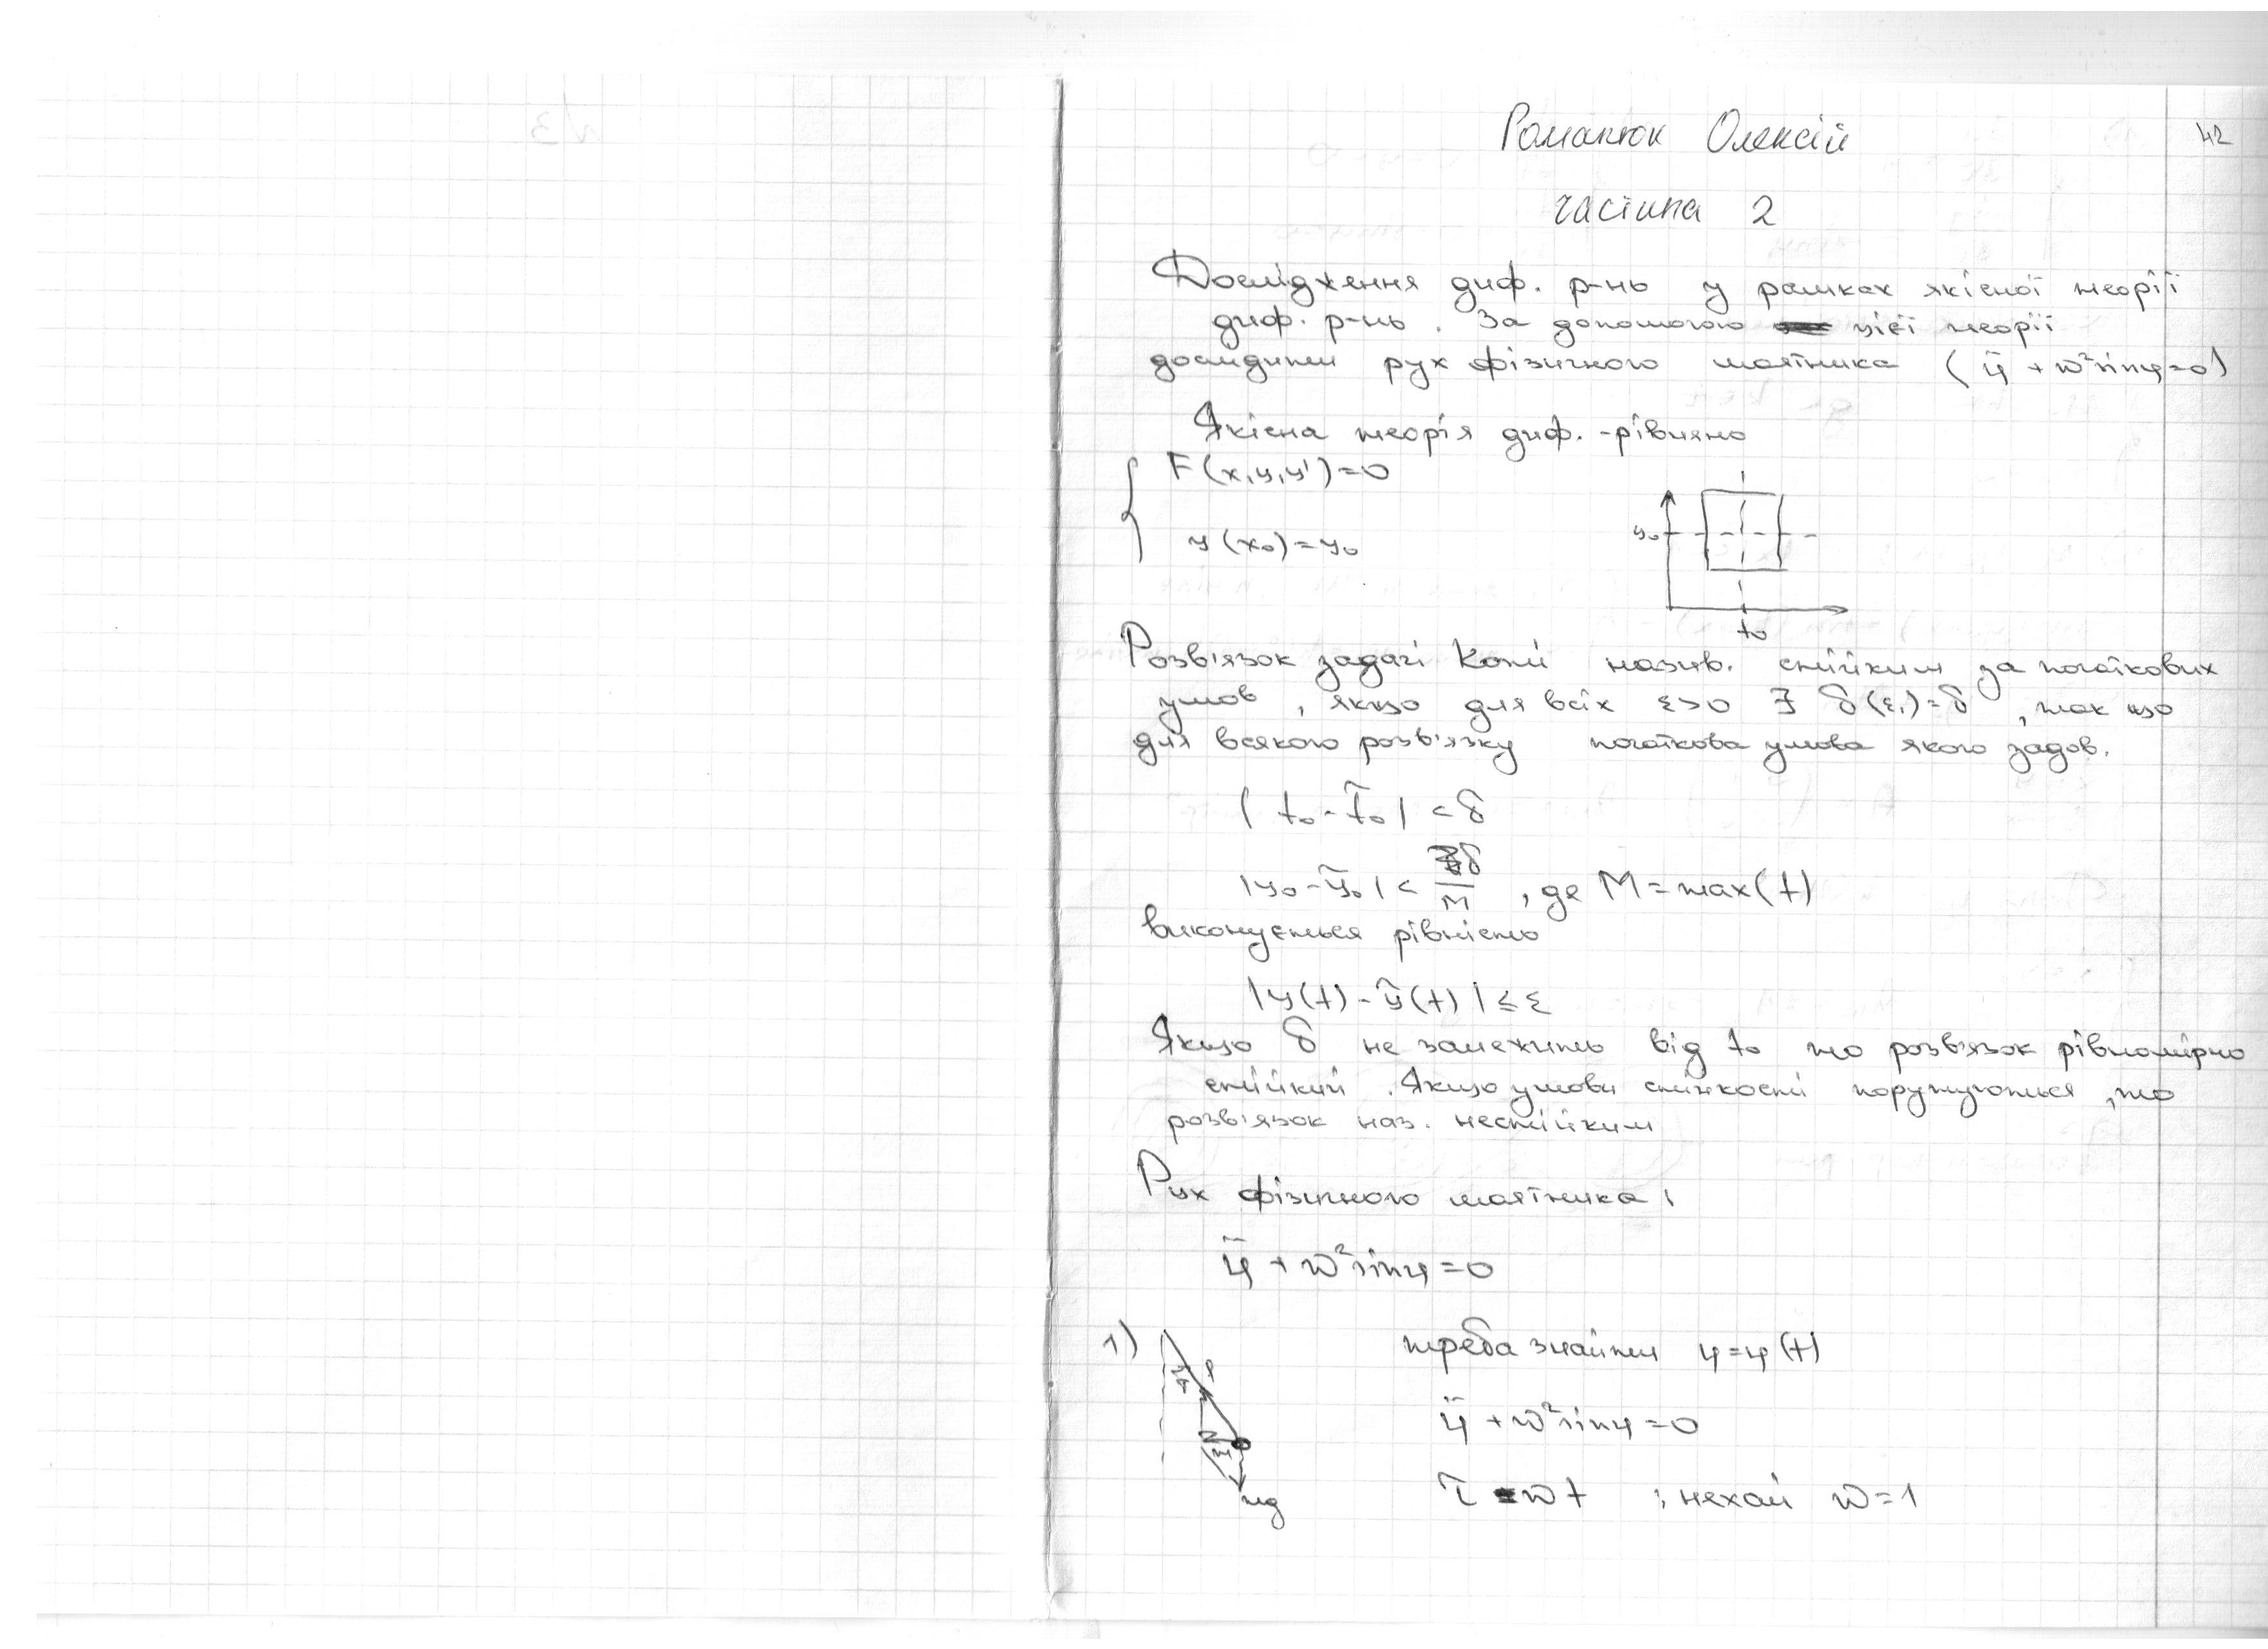 Романюк Олексій
42
частина 2
Дослідження диф. р-нь у рамках якісної теорії
диф. р-нь. За допомогою цієї теорії
дослідити рух фізичного маятника (φ̈ + ω²sinφ=0)
Якісна теорія диф.-рівнянь
F(x,y,y')=0
y(x₀)=y₀
y₀
t₀
Розв'язок задачі Коші назив. стійким за початкових
умов, якщо для всіх ε>0 ∃ δ(ε,)=δ, так що
для всякого розв'язку початкова умова якого задов.
|t₀-t̃₀|<δ
|y₀-ỹ₀|< δ/M, де M=max(t)
виконується рівність
|y(t)-ỹ(t)|≤ε
Якщо δ не залежить від t₀ то розв'язок рівномірно
стійкий. Якщо умови стійкості порушуються, то
розв'язок наз. нестійким
Рух фізичного маятника:
φ̈ + ω²sinφ=0
1) треба знайти φ=φ(t)
φ̈ + ω²sinφ=0
mg
τ=ωt ; нехай ω=1